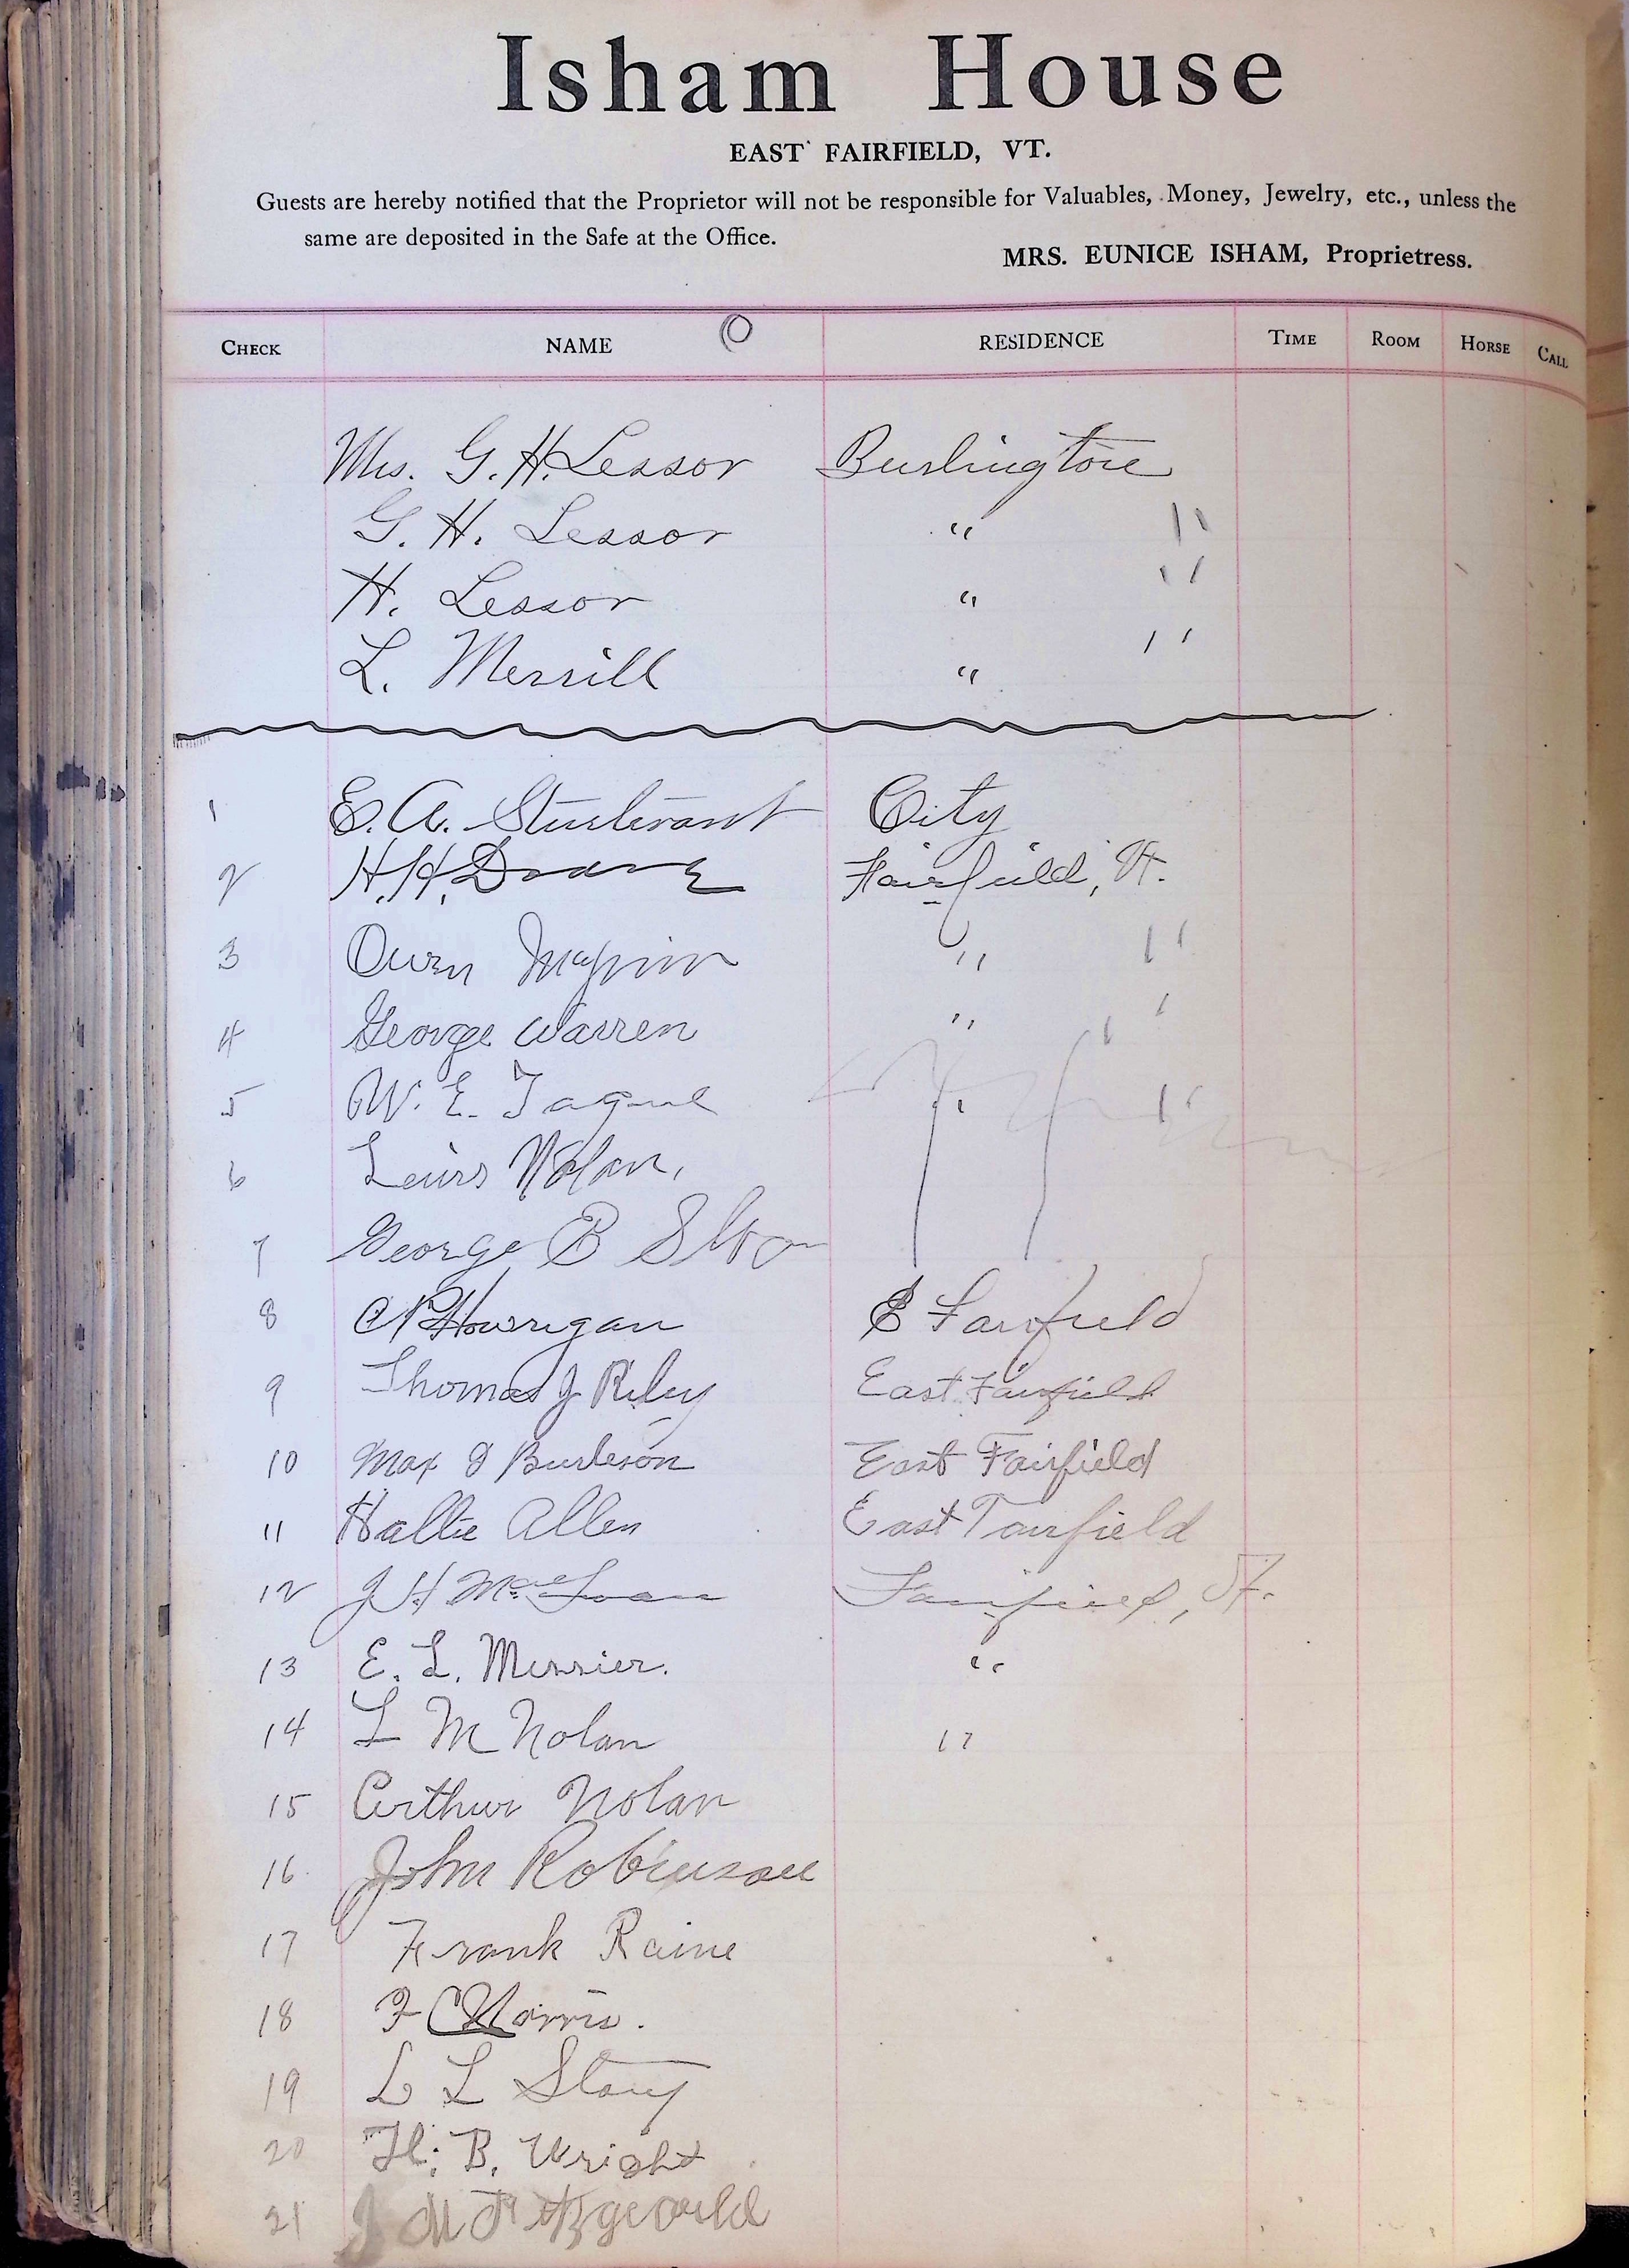 Isham House
EAST FAIRFIELD, VT.
Guests are hereby notified that the Proprietor will not be responsible for Valuables, Money, Jewelry, etc., unless the
same are deposited in the Safe at the Office.
MRS. EUNICE ISHAM, Proprietress.
CHECK NAME RESIDENCE TIME ROOM HORSE CALL
Mrs. G. H. Lessor Burlington
G. H. Lessor " "
H. Lessor " "
L. Merrill " "
1 E. A. Sturtevant City
2 H. H. Fairfield, Vt.
3 Owen " "
4 George Warren " "
5 W. E. Tague " "
6 Lewis Nolan,
7 George B
8 C P Howrigan E Fairfield
9 Thomas J Riley East Fairfield
10 Max D Burleson East Fairfield
11 Hallie Allen East Fairfield
12 J H Fairfield, Vt.
13 E. L. Messier. "
14 L M Nolan "
15 Arthur Nolan
16 John Robinson
17 Frank Raine
18 F C Norris.
19 L L Story
20 H. B. Wright
21 J M Fitzgerald